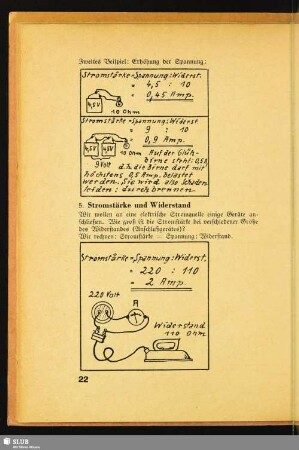 Zweites Beispiel: Erhöhung der Spannung:
Stromstärke = Spannung : Widerst.
= 4,5 : 10
= 0,45 Amp.
4,5V
10 Ohm
Stromstärke = Spannung : Widerst.
= 9 : 10
= 0,9 Amp.
4,5V 4,5V
10 Ohm
9 Volt
Auf der Glüh-
birne steht: 0,5A,
d.h. die Birne darf mit
höchstens 0,5 Amp. belastet
werden. Sie wird also Schaden
leiden: durchbrennen
5. Stromstärke und Widerstand
Wir wollen an eine elektrische Stromquelle einige Geräte an-
schließen. Wie groß ist die Stromstärke bei verschiedener Größe
des Widerstandes (Anschlußgerätes)?
Wir rechnen: Stromstärke = Spannung : Widerstand.
Stromstärke = Spannung : Widerst.
= 220 : 110
= 2 Amp.
220 Volt
A
Widerstand
110 Ohm
22
SLUB